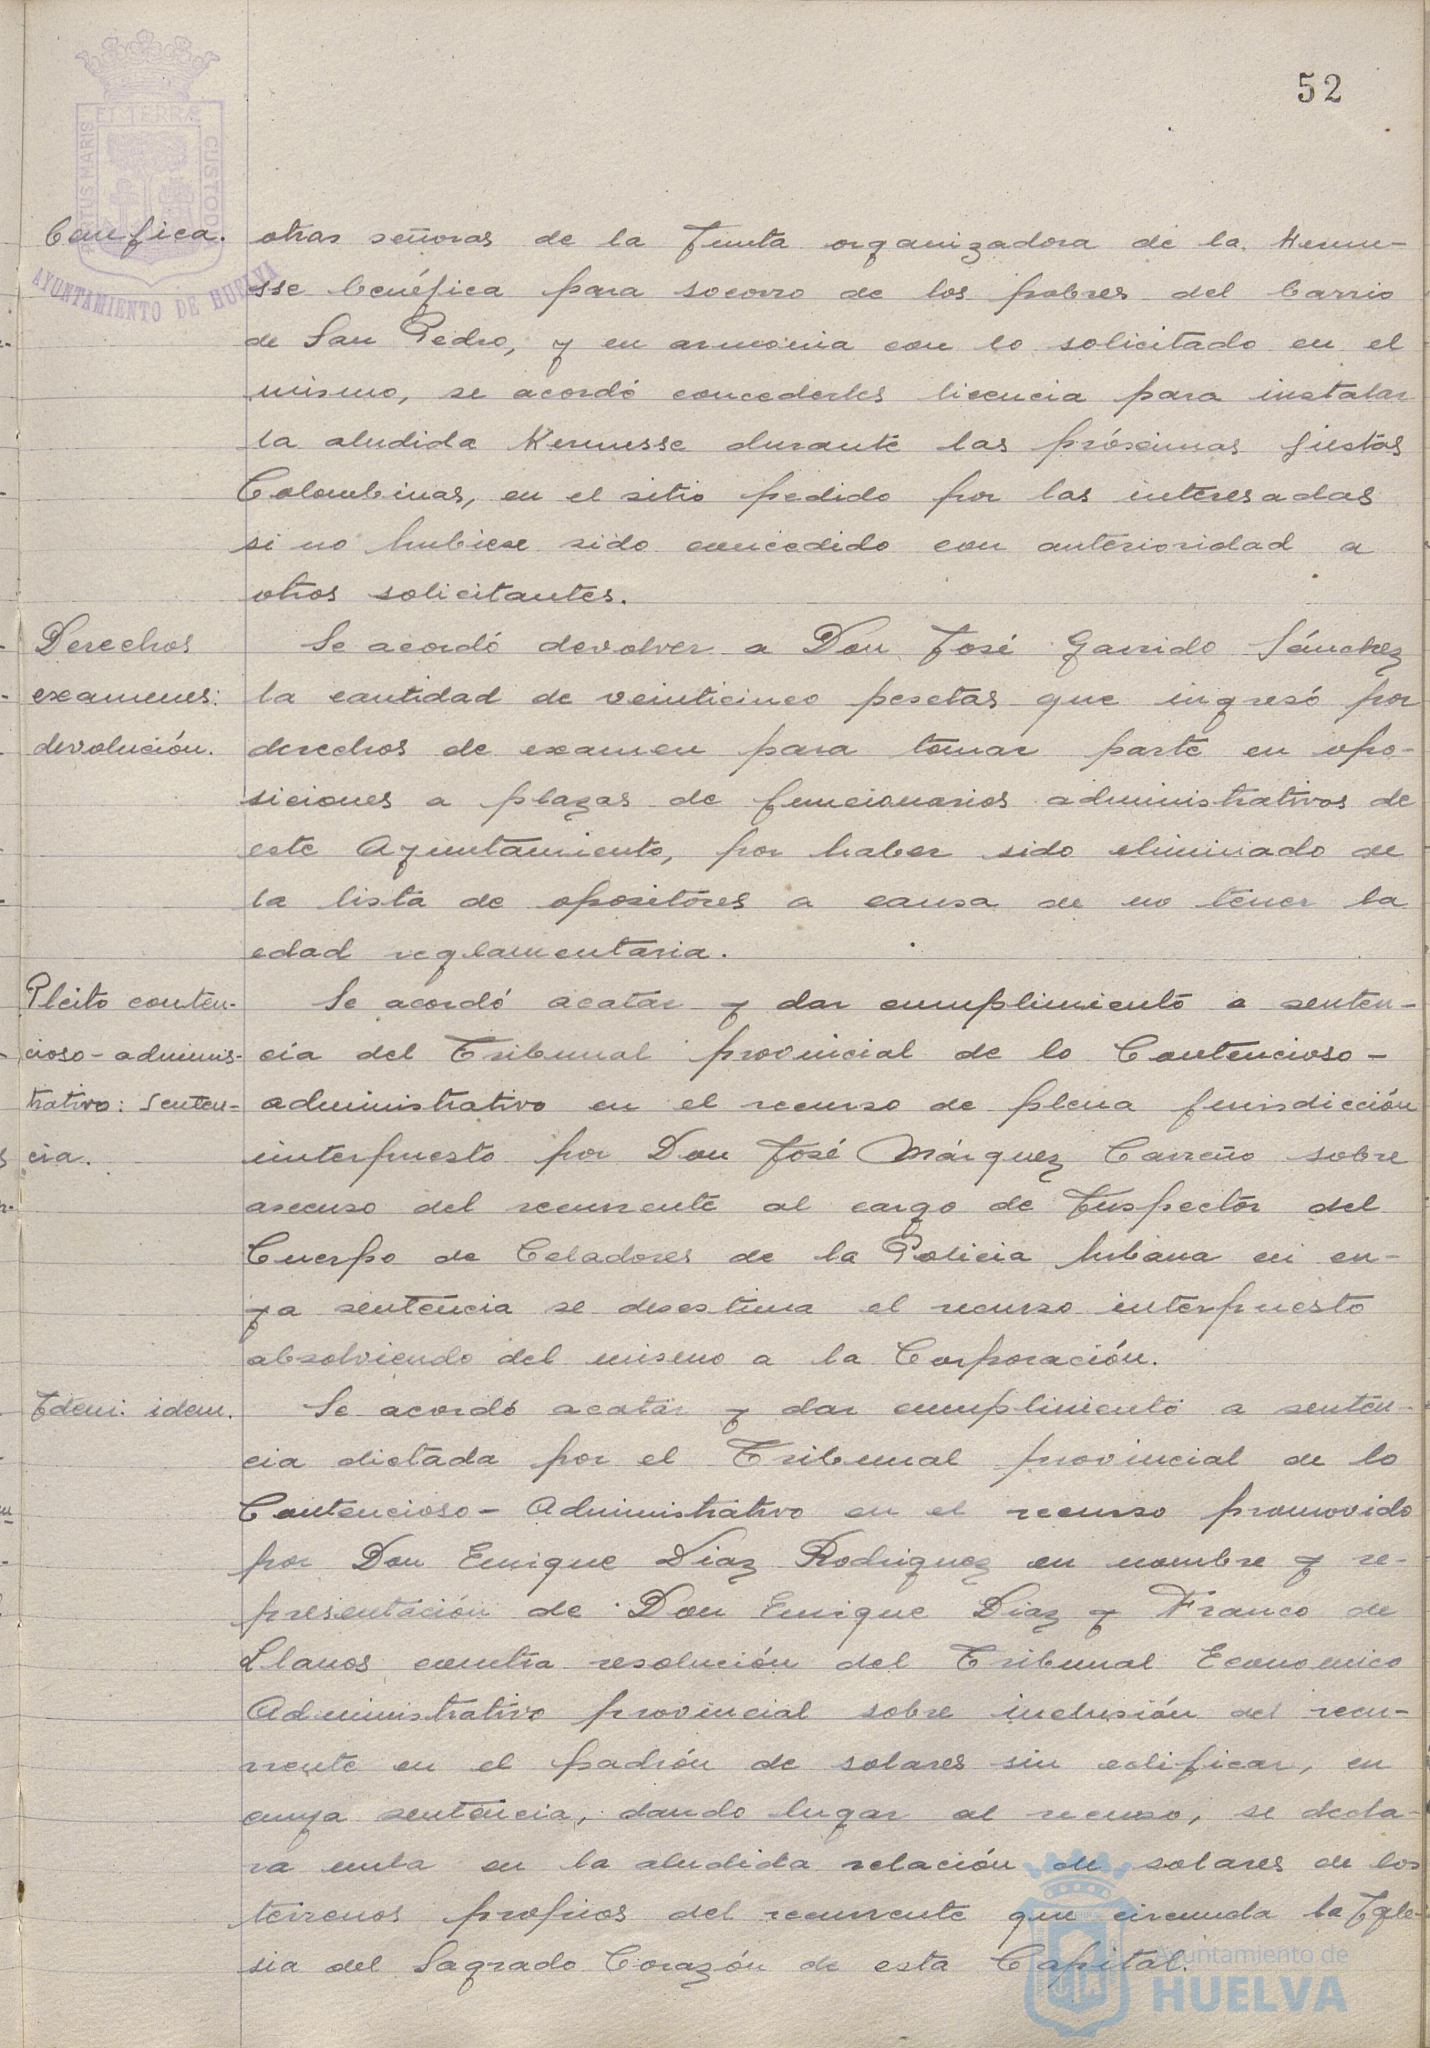 52
PORTUS MARIS ET TERRAE CUSTODIA
AYUNTAMIENTO DE HUELVA
benéfica.
otras señoras de la Junta organizadora de la Kerme-
sse benéfica para socorro de los pobres del barrio
de San Pedro, y en armonia con lo solicitado en el
mismo, se acordó concederles licencia para instalar
la aludida Kermesse durante las próximas fiestas
Colombinas, en el sitio pedido por las interesadas
si no hubiese sido concedido con anterioridad a
otros solicitantes.
Derechos
examenes:
devolución.
Se acordó devolver a Don José Garrido Sánchez
la cantidad de veinticinco pesetas que ingresó por
derechos de examen para tomar parte en opo-
siciones a plazas de funcionarios administrativos de
este Ayuntamiento, por haber sido eliminado de
la lista de opositores a causa de no tener la
edad reglamentaria.
Pleito conten-
cioso-adminis-
trativo: senten-
cia.
Se acordó acatar y dar cumplimiento a senten-
cia del Tribunal provincial de lo Contencioso-
administrativo en el recurso de plena jurisdicción
interpuesto por Don José Márquez Carreño sobre
ascenso del recurrente al cargo de Inspector del
Cuerpo de Celadores de la Policia Urbana en cu-
ya sentencia se desestima el recurso interpuesto
absolviendo del mismo a la Corporación.
Idem: idem.
Se acordó acatar y dar cumplimiento a senten-
cia dictada por el Tribunal provincial de lo
Contencioso-Administrativo en el recurso promovido
por Don Enrique Diaz Rodriguez en nombre y re-
presentación de Don Enrique Diaz y Franco de
Llanos contra resolución del Tribunal Economico
Administrativo provincial sobre inclusión del recu-
rrente en el padrón de solares sin edificar, en
cuya sentencia, dando lugar al recurso, se decla-
ra nula en la aludida relación de solares de los
terrenos propios del recurrente que circunda la Igle-
sia del Sagrado Corazón de esta Capital.
Ayuntamiento de
HUELVA